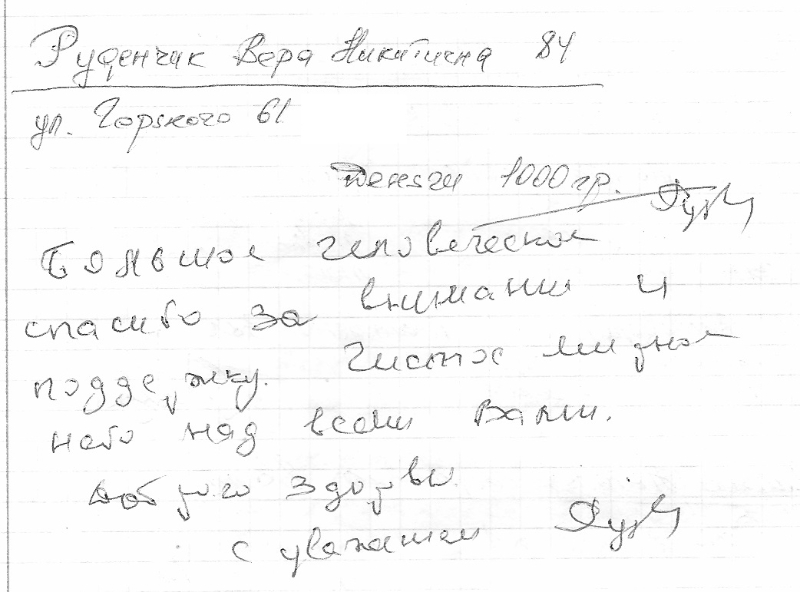 Руденчик Вера Никитична 84
ул. Горького 61
Деньги 1000 гр.
Большое человеческое
спасибо за внимания и
поддержку. Чистое мирное
небо над всеми Вами.
Доброго здоровья
с уважением